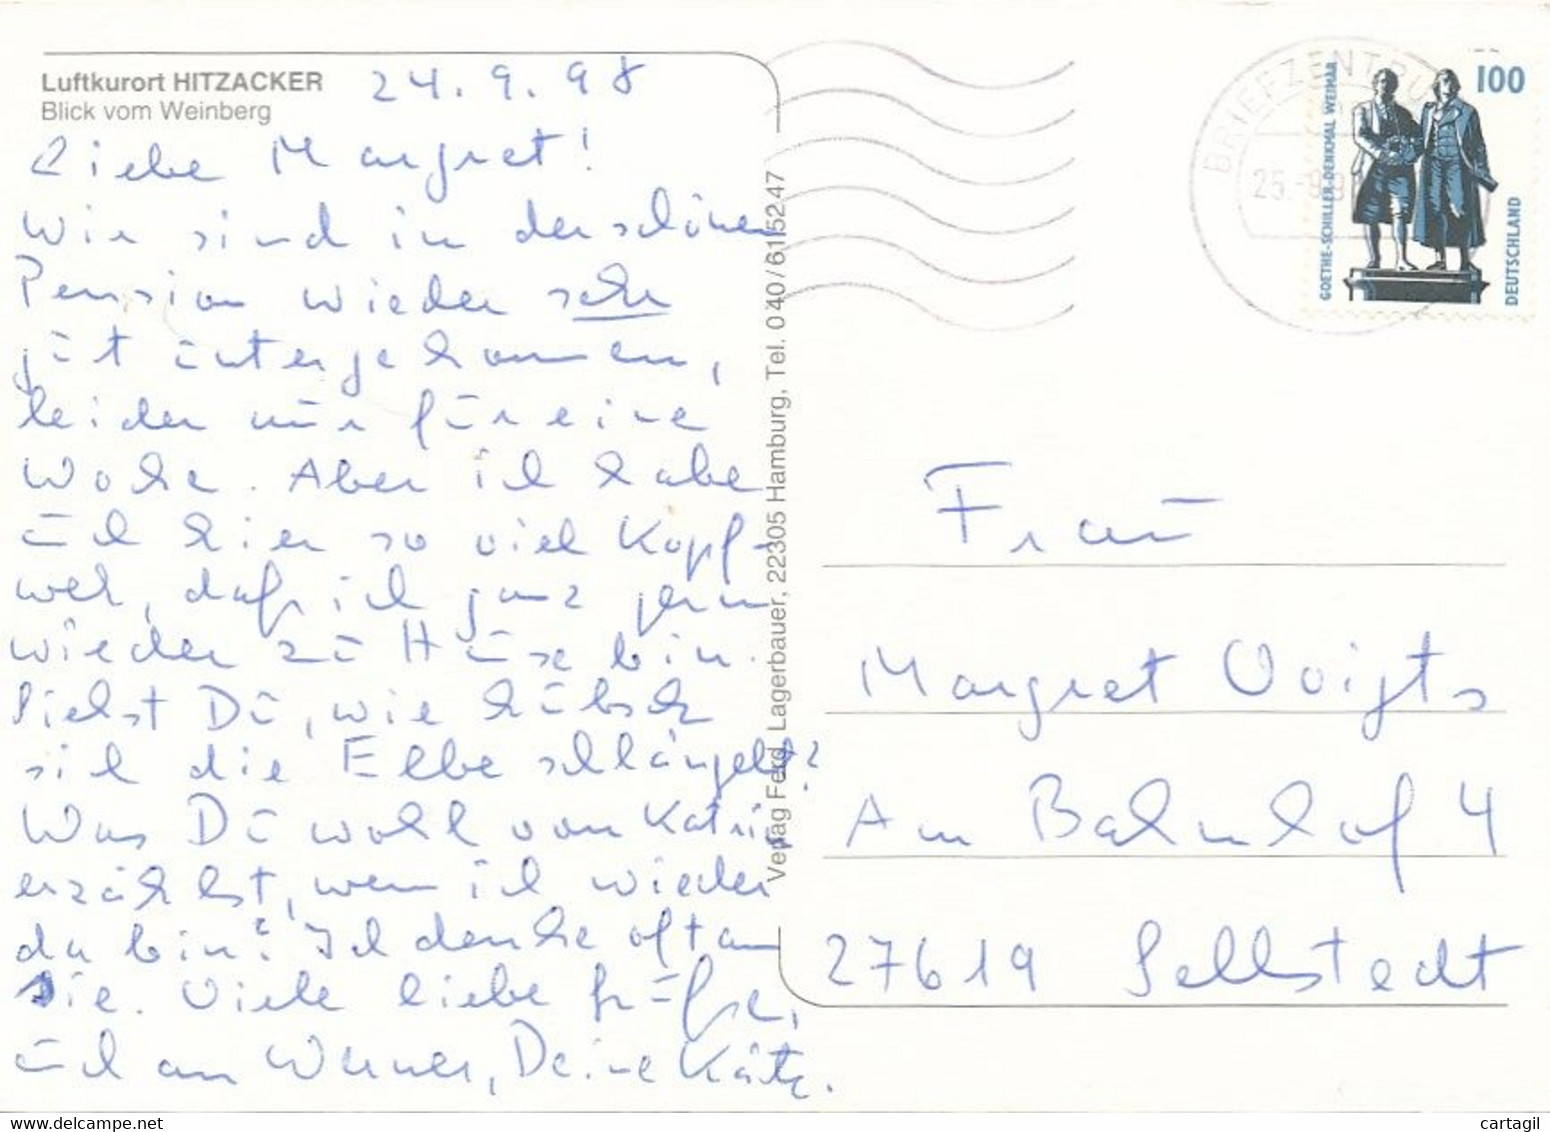 Luftkurort HITZACKER
Blick vom Weinberg
24.9.98
Liebe Margret!
Wir sind in der schönen
Pension wieder sehr
gut untergekommen,
leider nur für eine
Woche. Aber ich habe
auch hier so viel Kopf-
weh, daß ich ganz gern
wieder zu Hause bin.
Siehst Du, wie hübsch
sich die Elbe schlängelt?
Was Du wohl von Katrin
erzählst, wenn ich wieder
da bin? Ich denke oft an
sie. Viele liebe Grüße,
auch an Werner, Deine Käthe.
Verlag Ferd. Lagerbauer, 22305 Hamburg, Tel. 040/615247
BRIEFZENTRU
25.-9.9
GOETHE-SCHILLER-DENKMAL WEIMAR
100
DEUTSCHLAND
Frau
Margret Voigts
Am Bahnhof 4
27619 Sellstedt
cartagil